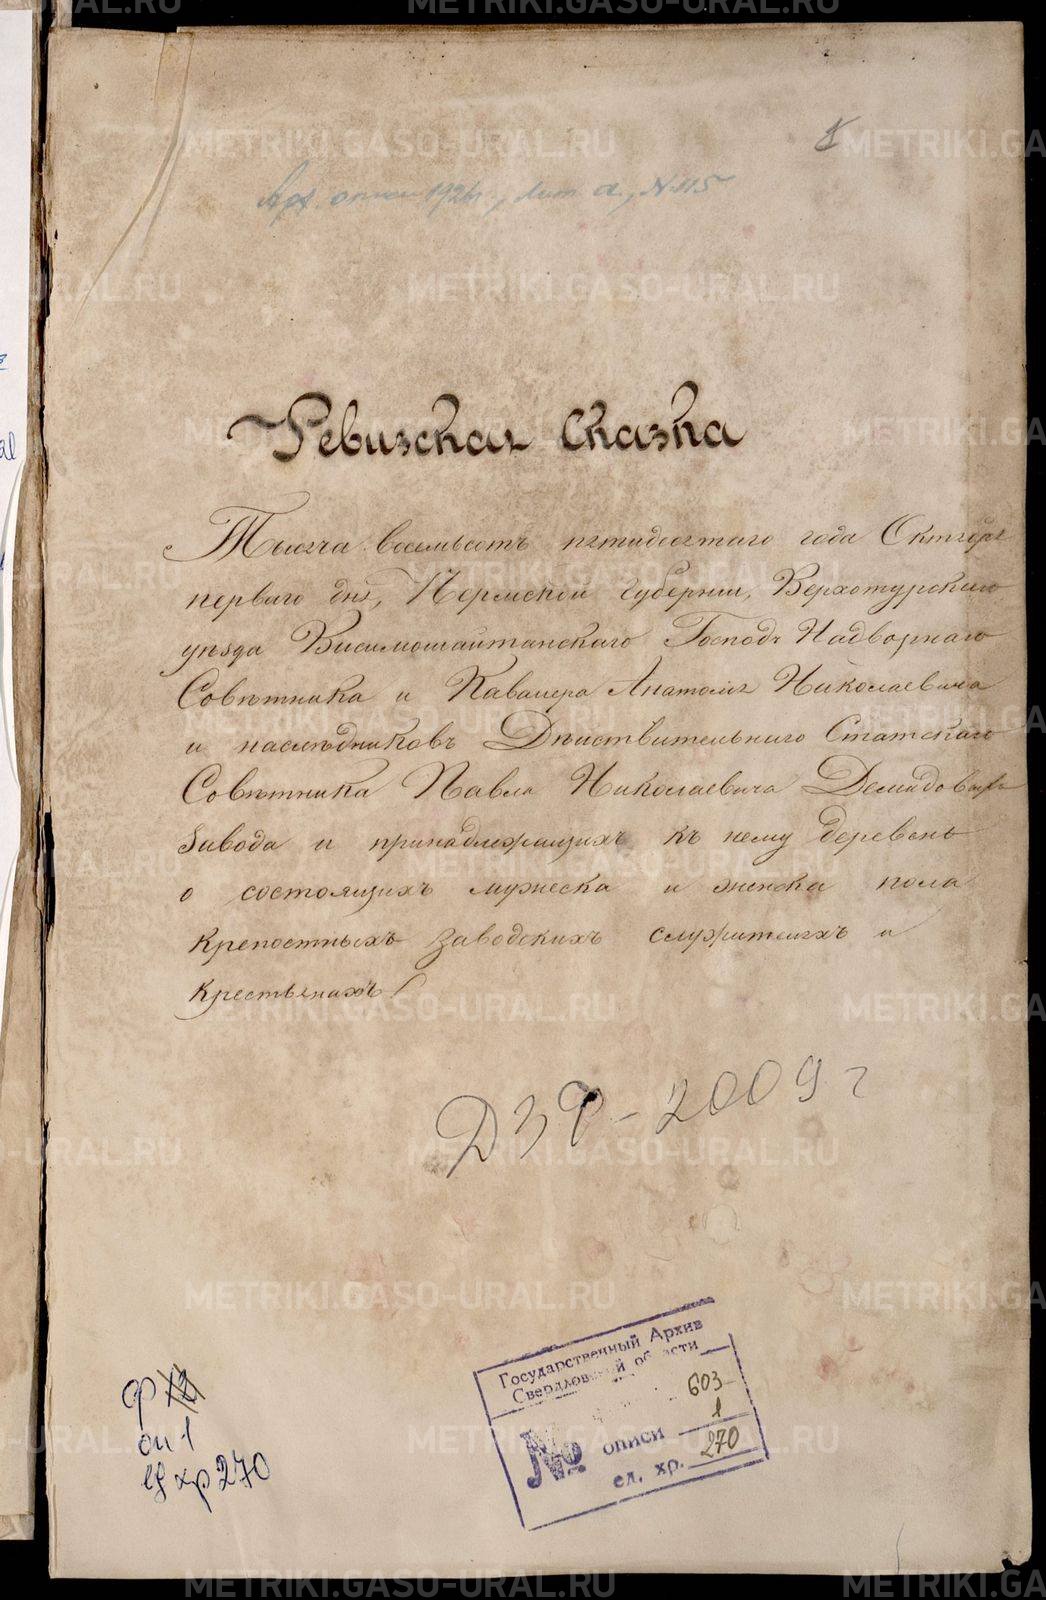 Арх. описи 1926г., лит а, №115
Ревизская Сказка
Тысяча восемьсотъ пятидесятаго года Октября
перваго дня, Пермской губернии, Верхотурскаго
уѣзда Висимошайтанскаго Господъ Надворнаго
Совѣтника и Кавалера Анатолія Николаевича
и наслѣдниковъ Дѣйствительнаго Статскаго
Совѣтника Павла Николаевича Демидовыхъ
завода и принадлежащихъ къ нему деревень
о состоящихъ мужеска и женска пола
крепостныхъ заводскихъ служителяхъ и
крестьянахъ
ДЗФ-2009г
Государственный Архив
Свердловской области
603
№ описи 1
ед. хр. 270
ф 12
оп 1
ед хр 270
METRIKI.GASO-URAL.RU